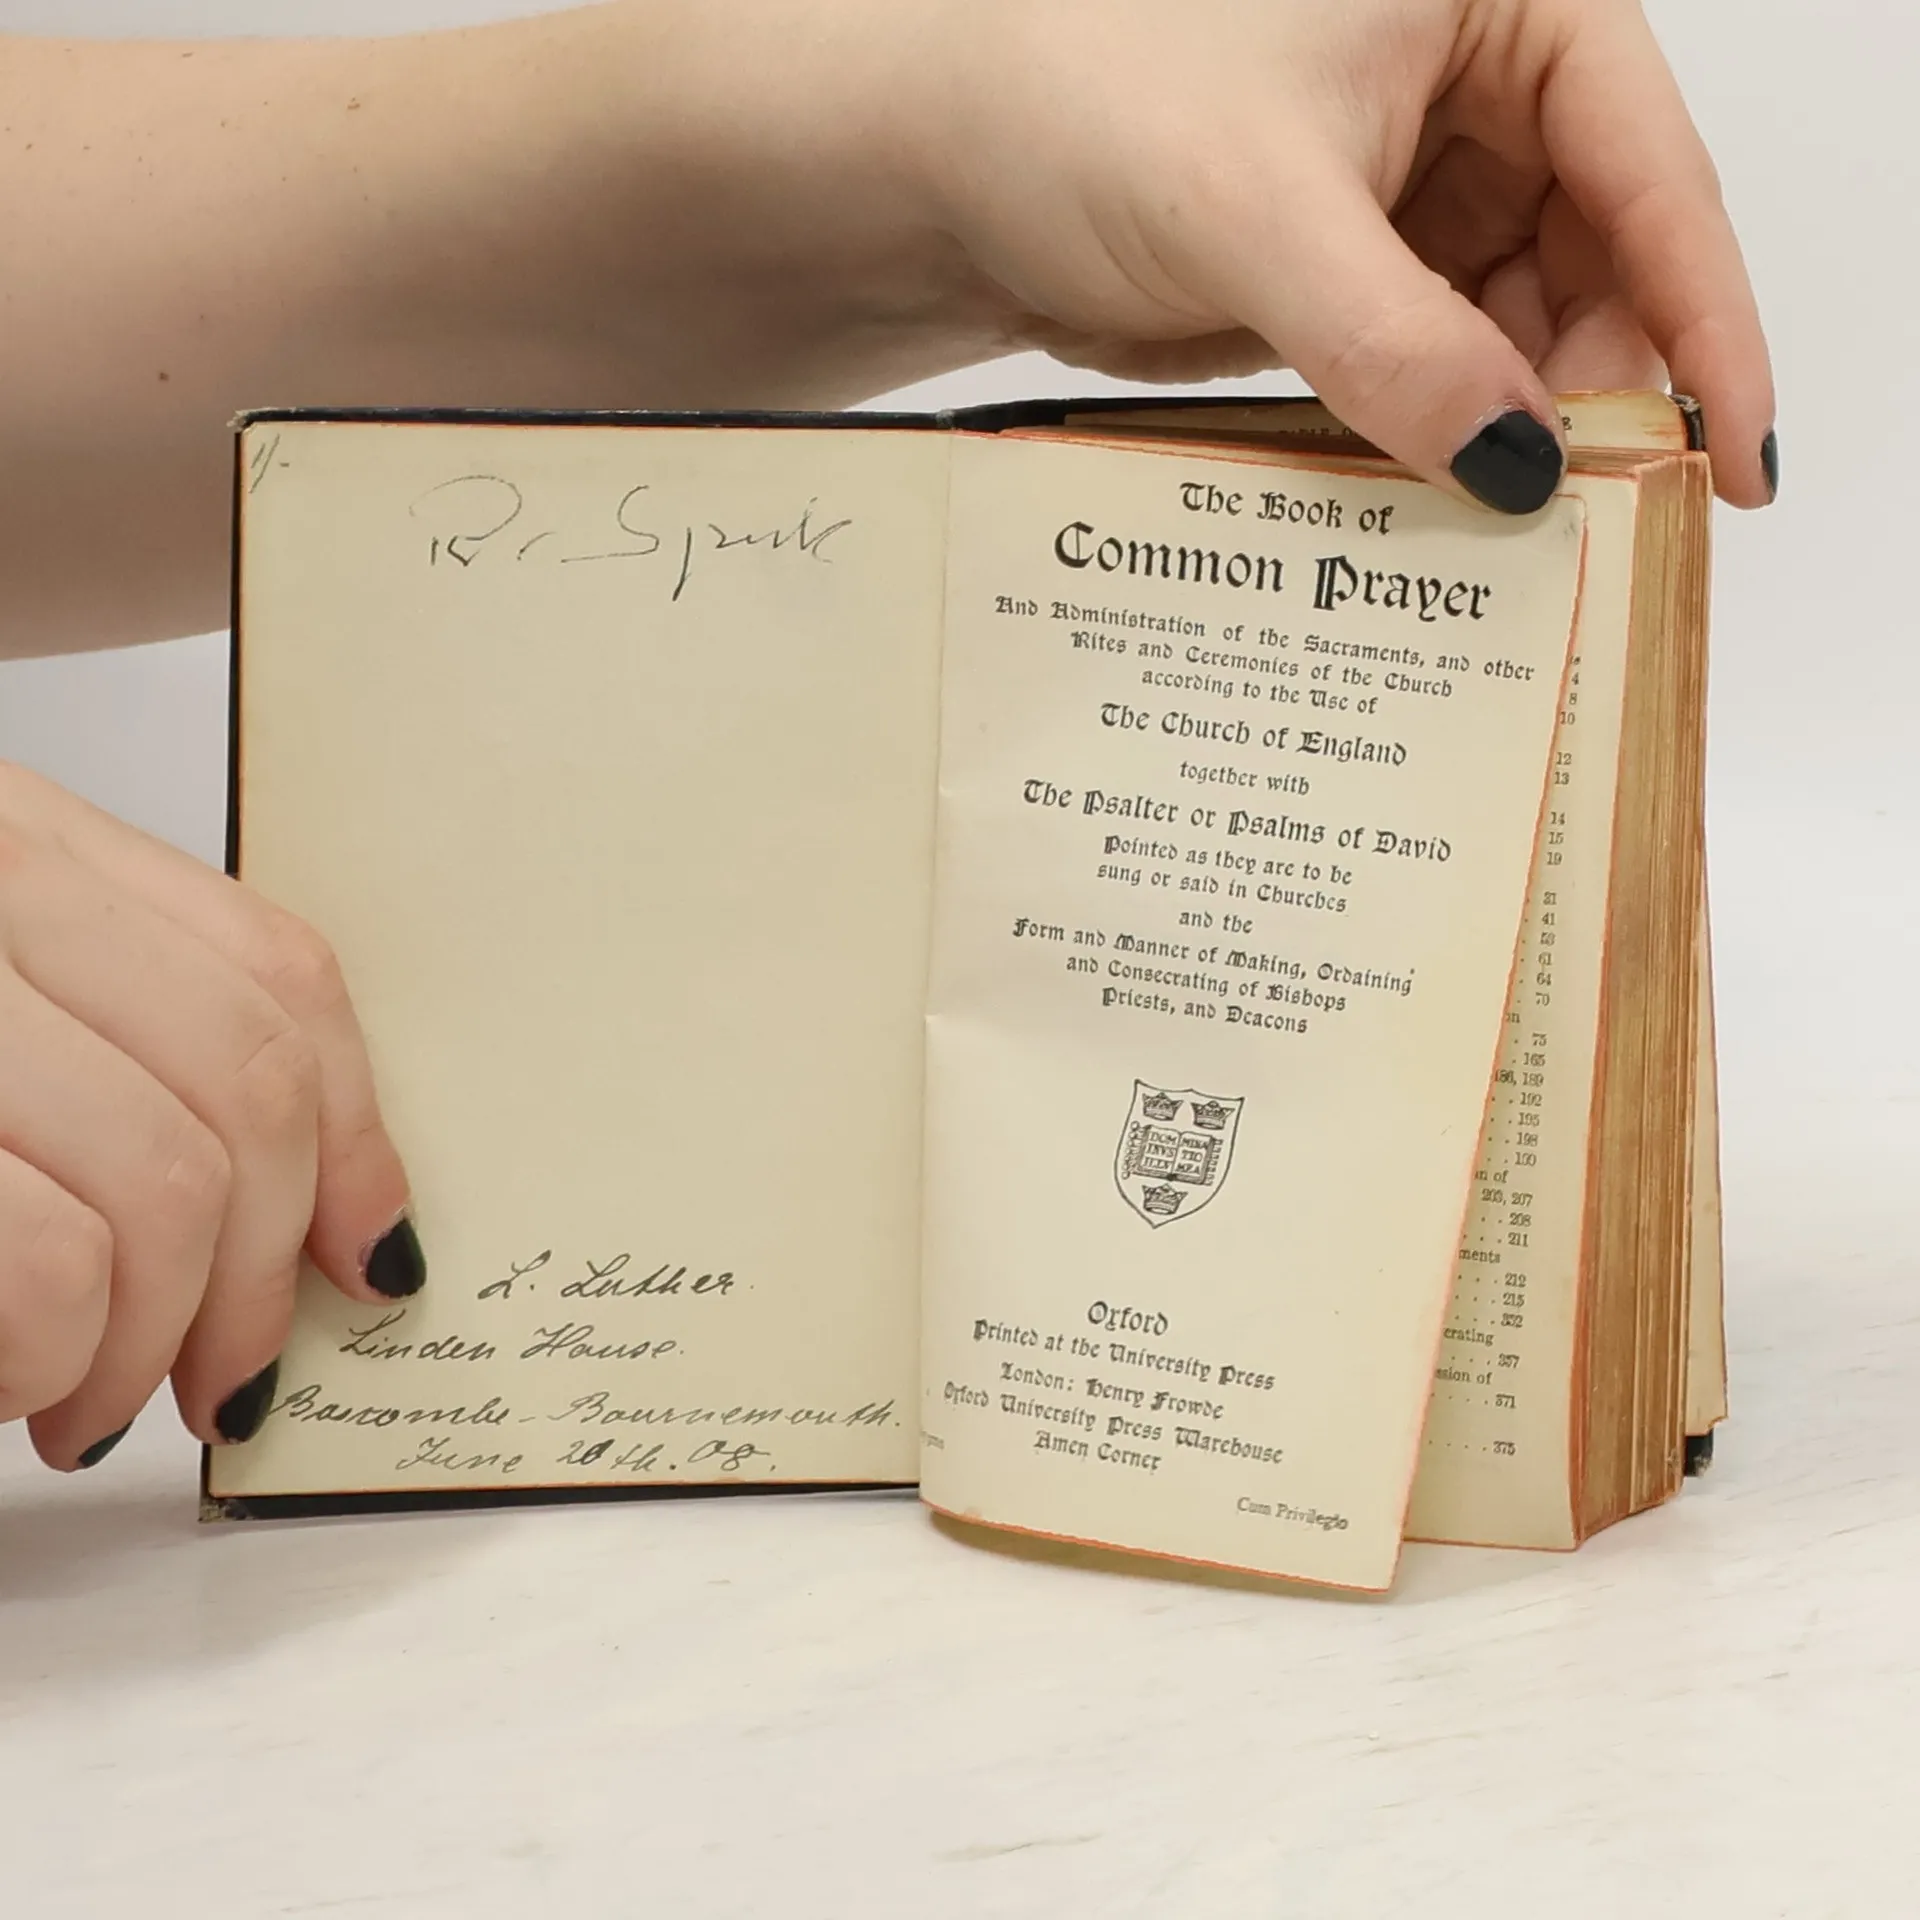 1/-
R.
L. Luther.
Linden House.
Boscombe - Bournemouth.
June 20th. 08.
The Book of
Common Prayer
And Administration of the Sacraments, and other
Rites and Ceremonies of the Church
according to the Use of
The Church of England
together with
The Psalter or Psalms of David
Pointed as they are to be
sung or said in Churches
and the
Form and Manner of Making, Ordaining
and Consecrating of Bishops
Priests, and Deacons
DOM MINA
INVS TIO
ILLV MEA
Oxford
Printed at the University Press
London: Henry Frowde
Oxford University Press Warehouse
Amen Corner
Cum Privilegio
4
8
10
12
13
14
15
19
21
41
58
61
64
70
75
165
186, 189
192
195
198
199
of
203, 207
208
211
212
215
352
357
of
371
375